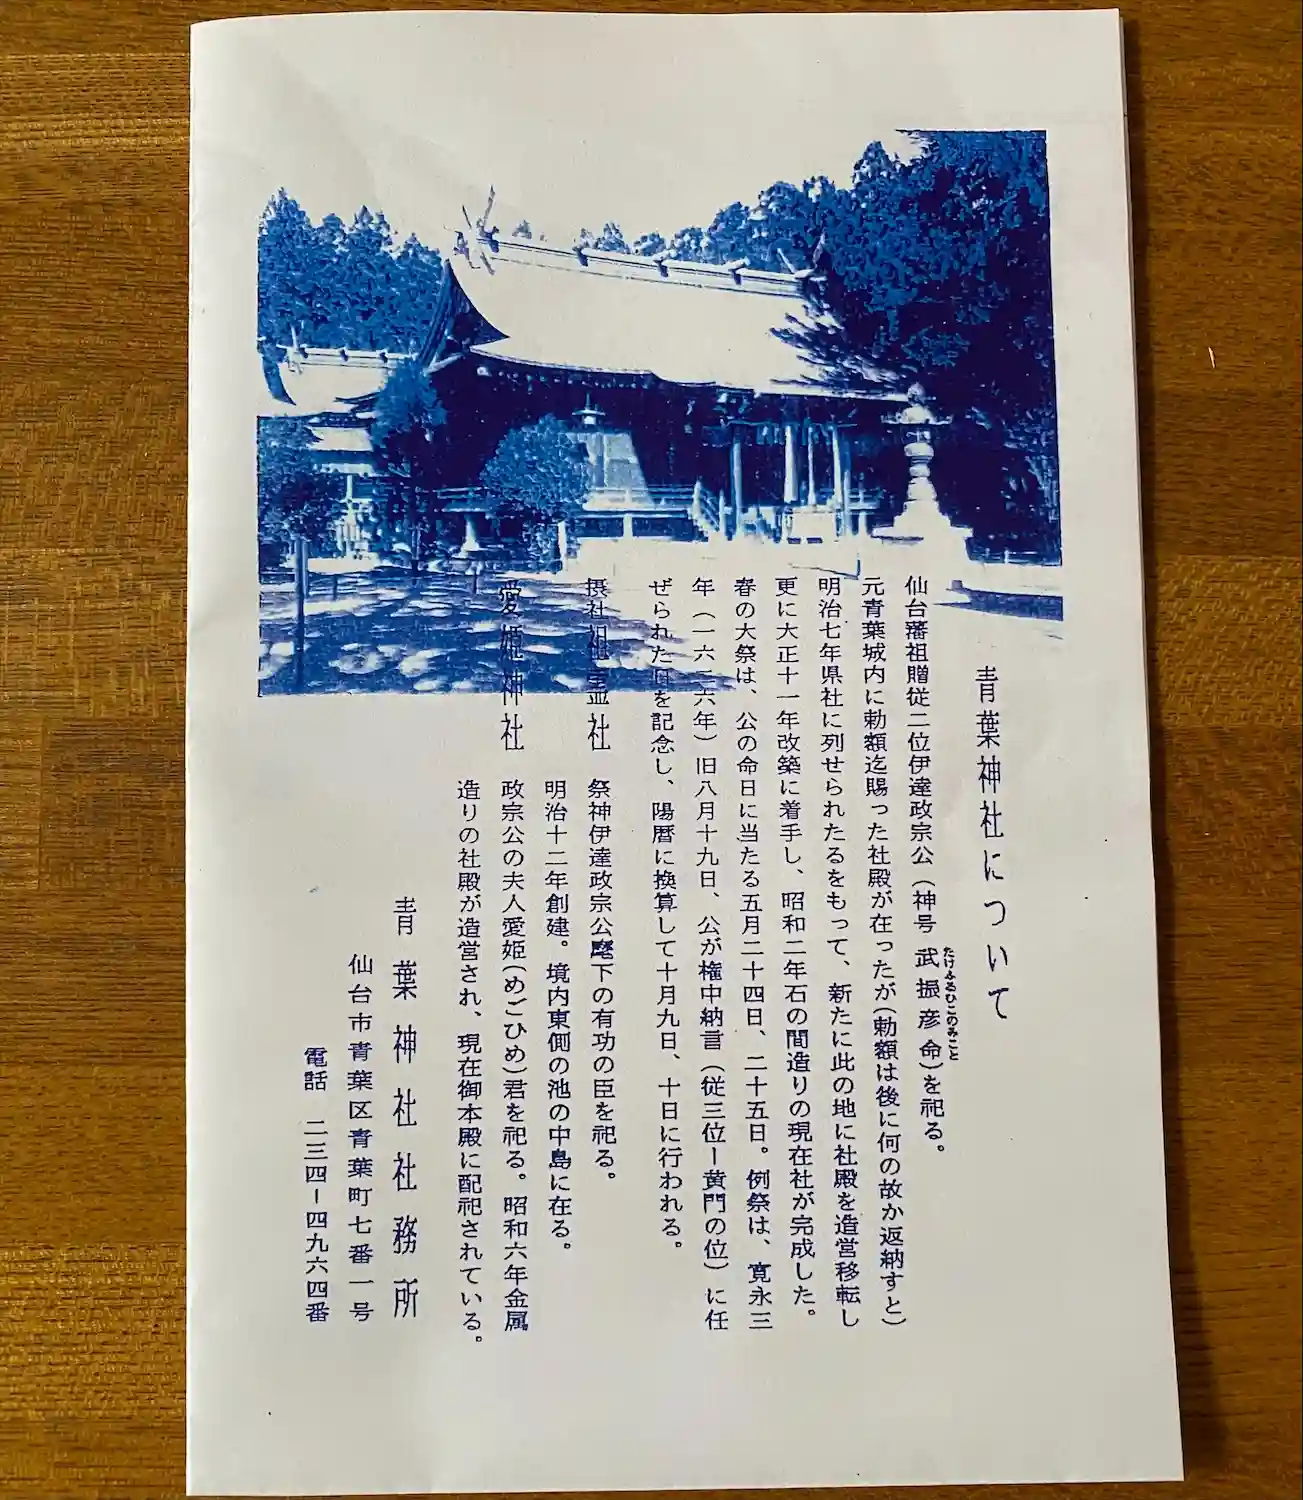 青葉神社について
仙台藩祖贈従二位伊達政宗公（神号 武振彦命）を祀る。
たけふるひこのみこと
元青葉城内に勅額迄賜った社殿が在ったが（勅額は後に何の故か返納すと）
明治七年県社に列せられたるをもって、新たに此の地に社殿を造営移転し
更に大正十一年改築に着手し、昭和二年石の間造りの現在社が完成した。
春の大祭は、公の命日に当たる五月二十四日、二十五日。例祭は、寛永三
年（一六二六年）旧八月十九日、公が権中納言（従三位ー黄門の位）に任
ぜられた日を記念し、陽暦に換算して十月九日、十日に行われる。
摂社祖霊社 祭神伊達政宗公麾下の有功の臣を祀る。
明治十二年創建。境内東側の池の中島に在る。
愛姫神社 政宗公の夫人愛姫（めごひめ）君を祀る。昭和六年金属
造りの社殿が造営され、現在御本殿に配祀されている。
青葉神社社務所
仙台市青葉区青葉町七番一号
電話 二三四ー四九六四番